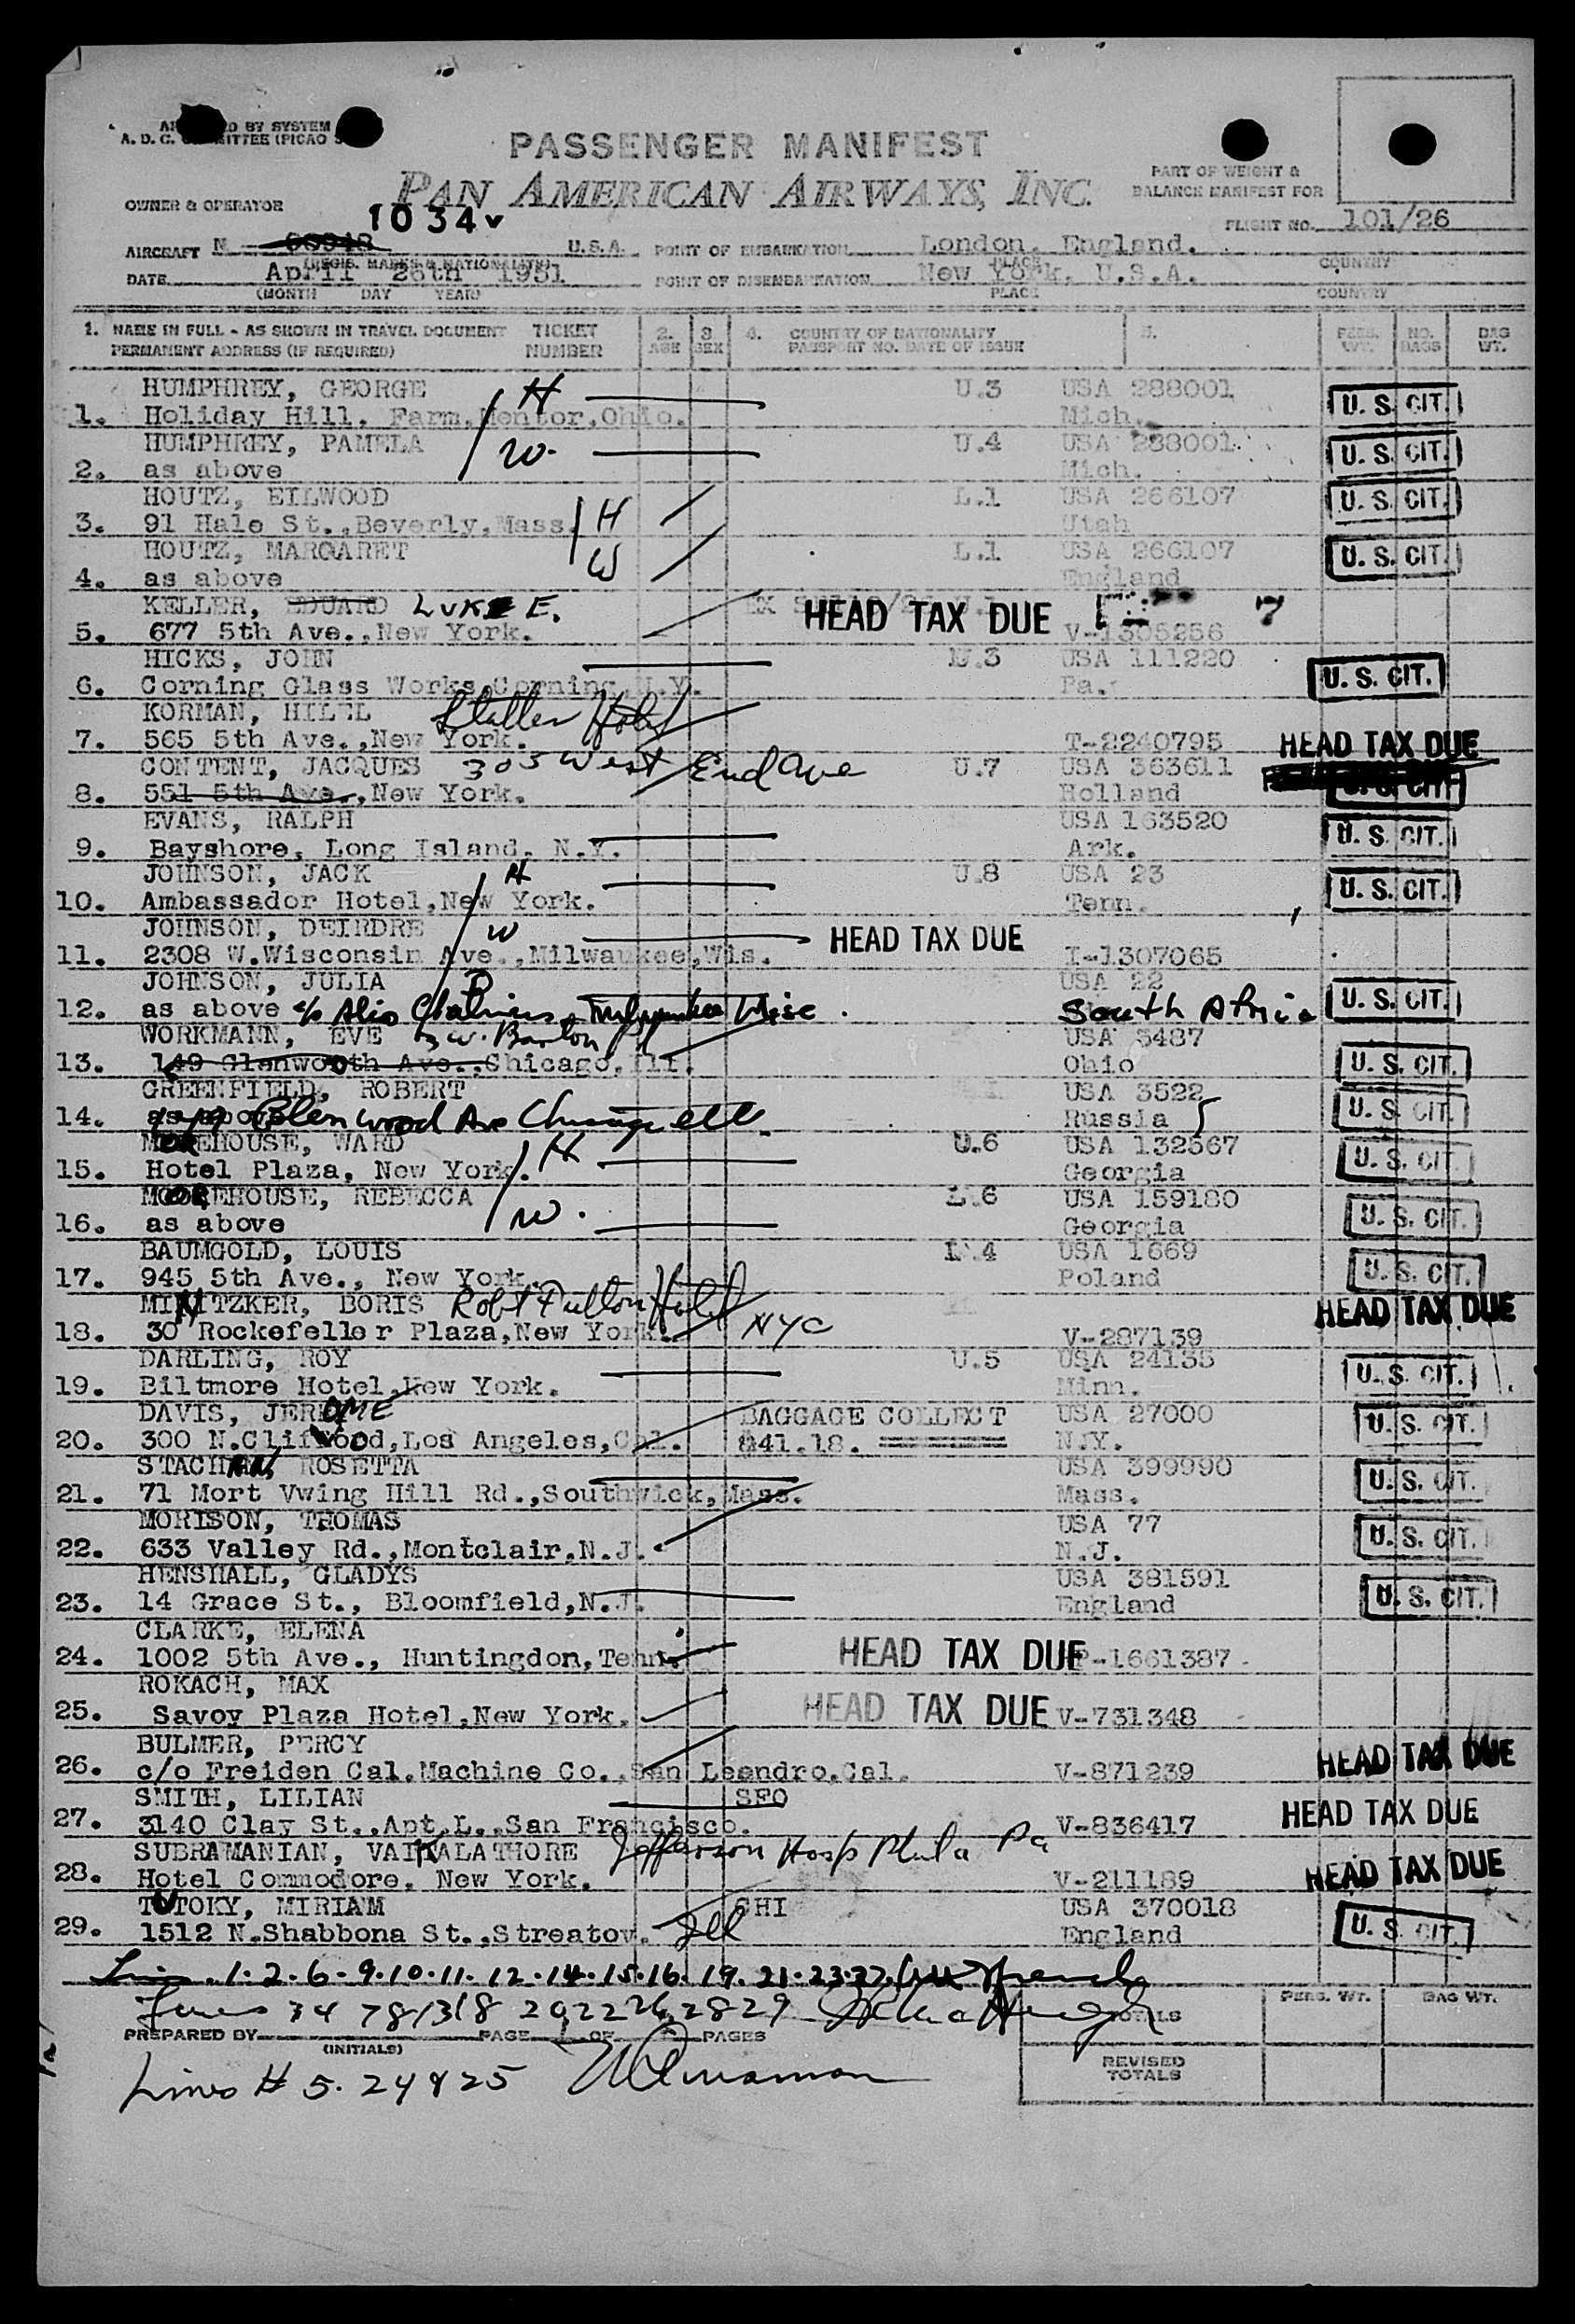 BY SYSTEM
A. D. C. (PICAO
PASSENGER MANIFEST
PAN AMERICAN AIRWAYS, INC.
PART OF WEIGHT &
BALANCE MANIFEST FOR
OWNER & OPERATOR
1034
FLIGHT NO. 101/26
AIRCRAFT N U.S.A. POINT OF EMBARKATION London, England.
(REGIS. MARKS & NATIONALITY) PLACE COUNTRY
DATE April 26th 1951 POINT OF DISEMBARKATION New York, U.S.A.
(MONTH DAY YEAR) PLACE COUNTRY
1. NAME IN FULL - AS SHOWN IN TRAVEL DOCUMENT TICKET 2. 3. 4. COUNTRY OF NATIONALITY 5. PERS. NO. BAG
PERMANENT ADDRESS (IF REQUIRED) NUMBER AGE SEX PASSPORT NO. DATE OF ISSUE WT. BAGS WT.
HUMPHREY, GEORGE H U.3 USA 288001
1. Holiday Hill, Farm,Mentor,Ohio. Mich. U. S. CIT.
HUMPHREY, PAMELA W. U.4 USA 288001
2. as above Mich. U. S. CIT.
HOUTZ, EILWOOD L.1 USA 266107
3. 91 Hale St.,Beverly,Mass. H Utah U. S. CIT.
HOUTZ, MARGARET W L.1 USA 266107
4. as above England U. S. CIT.
KELLER, EDUARD LUKE E. HEAD TAX DUE 7
5. 677 5th Ave.,New York. V-1305256
HICKS, JOHN U.3 USA 111220
6. Corning Glass Works,Corning N.Y. Pa. U. S. CIT.
KORMAN, HILEL Statler Hotel
7. 565 5th Ave.,New York. T-2240795 HEAD TAX DUE
CONTENT, JACQUES 305 West End Ave U.7 USA 363611
8. 551 5th Ave.,New York. Holland U. S. CIT
EVANS, RALPH USA 163520
9. Bayshore, Long Island, N.Y. Ark. U. S. CIT.
JOHNSON, JACK H U.8 USA 23
10. Ambassador Hotel,New York. Tenn. U. S. CIT.
JOHNSON, DEIRDRE W HEAD TAX DUE
11. 2308 W.Wisconsin Ave.,Milwaukee,Wis. I-1307065
JOHNSON, JULIA USA 22
12. as above c/o Milwaukee Wisc. South Africa U. S. CIT.
WORKMANN, EVE W. Barton USA 5487
13. 149 Glenwooth Ave.,Chicago,Ill. Ohio U. S. CIT.
GREENFIELD, ROBERT USA 3522
14. as above Glenwood Ave Russia U. S. CIT.
MOREHOUSE, WARD H U.6 USA 132567
15. Hotel Plaza, New York. Georgia U. S. CIT.
MOOREHOUSE, REBECCA W. U.6 USA 159180
16. as above Georgia U. S. CIT.
BAUMGOLD, LOUIS U.4 USA 1669
17. 945 5th Ave., New York. Poland U. S. CIT.
MINITZKER, BORIS Robt Fulton Hotel HEAD TAX DUE
18. 30 Rockefeller Plaza,New York. NYC V-287139
DARLING, ROY U.5 USA 24135
19. Biltmore Hotel,New York. Minn. U. S. CIT.
DAVIS, JEROME BAGGAGE COLLECT USA 27000
20. 300 N.Clifwood,Los Angeles,Cal. $41.18. N.Y. U. S. CIT.
ROSETTA USA 399990
21. 71 Mort Vwing Hill Rd.,Southwick,Mass. Mass. U. S. CIT.
MORISON, THOMAS USA 77
22. 633 Valley Rd.,Montclair,N.J. N.J. U. S. CIT.
HENSHALL, GLADYS USA 381591
23. 14 Grace St., Bloomfield,N.J. England U. S. CIT.
CLARKE, ELENA
24. 1002 5th Ave., Huntingdon,Tenn. HEAD TAX DUE P-1661387
ROKACH, MAX
25. Savoy Plaza Hotel,New York. HEAD TAX DUE V-731348
BULMER, PERCY
26. c/o Freiden Cal.Machine Co.,San Leandro,Cal. V-871239 HEAD TAX DUE
SMITH, LILIAN SFO
27. 3140 Clay St.,Apt.L.,San Francisco. V-836417 HEAD TAX DUE
SUBRAMANIAN, VAIKALATHORE Jefferson Hosp Phila Pa
28. Hotel Commodore, New York. V-211189 HEAD TAX DUE
TUTOKY, MIRIAM CHI USA 370018
29. 1512 N.Shabbona St.,Streator. Ill England U. S. CIT.
Lines. 1.2.6.9.10.11.12.14.15.16.19.21.23.27.
Lines 3 4 7 8 13 18 20 22 26 28 29
PREPARED BY PAGE 1 OF PAGES
(INITIALS)
Lines # 5. 24 & 25
TOTALS PERS. WT. BAG WT.
REVISED
TOTALS